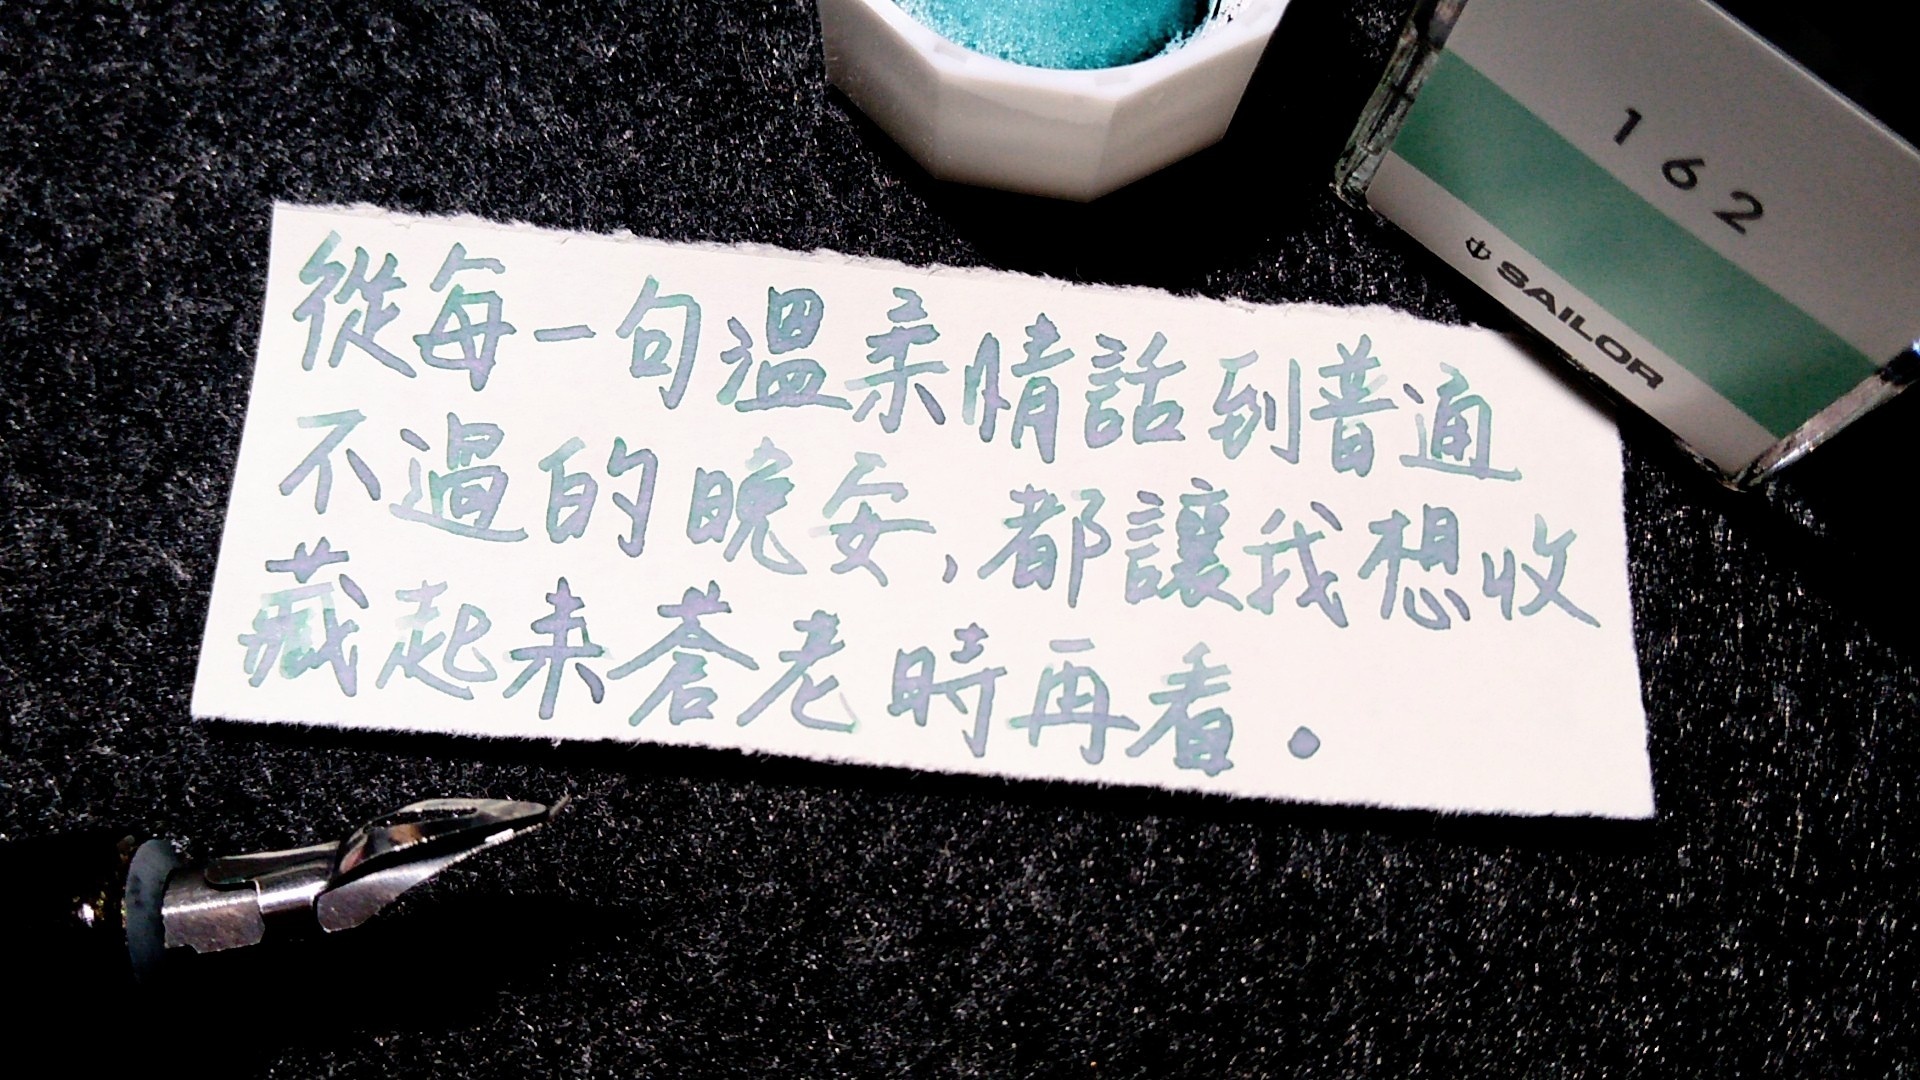 162
SAILOR
從每一句溫柔情話到普通
不過的晚安,都讓我想收
藏起来蒼老時再看。